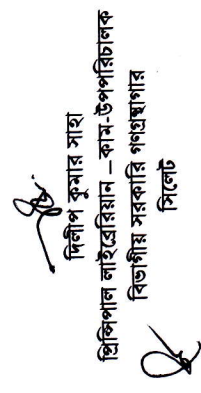 দিলীপ কুমার সাহা
প্রিন্সিপাল লাইব্রেরিয়ান – কাম-উপপরিচালক
বিভাগীয় সরকারি গণগ্রন্থাগার
সিলেট